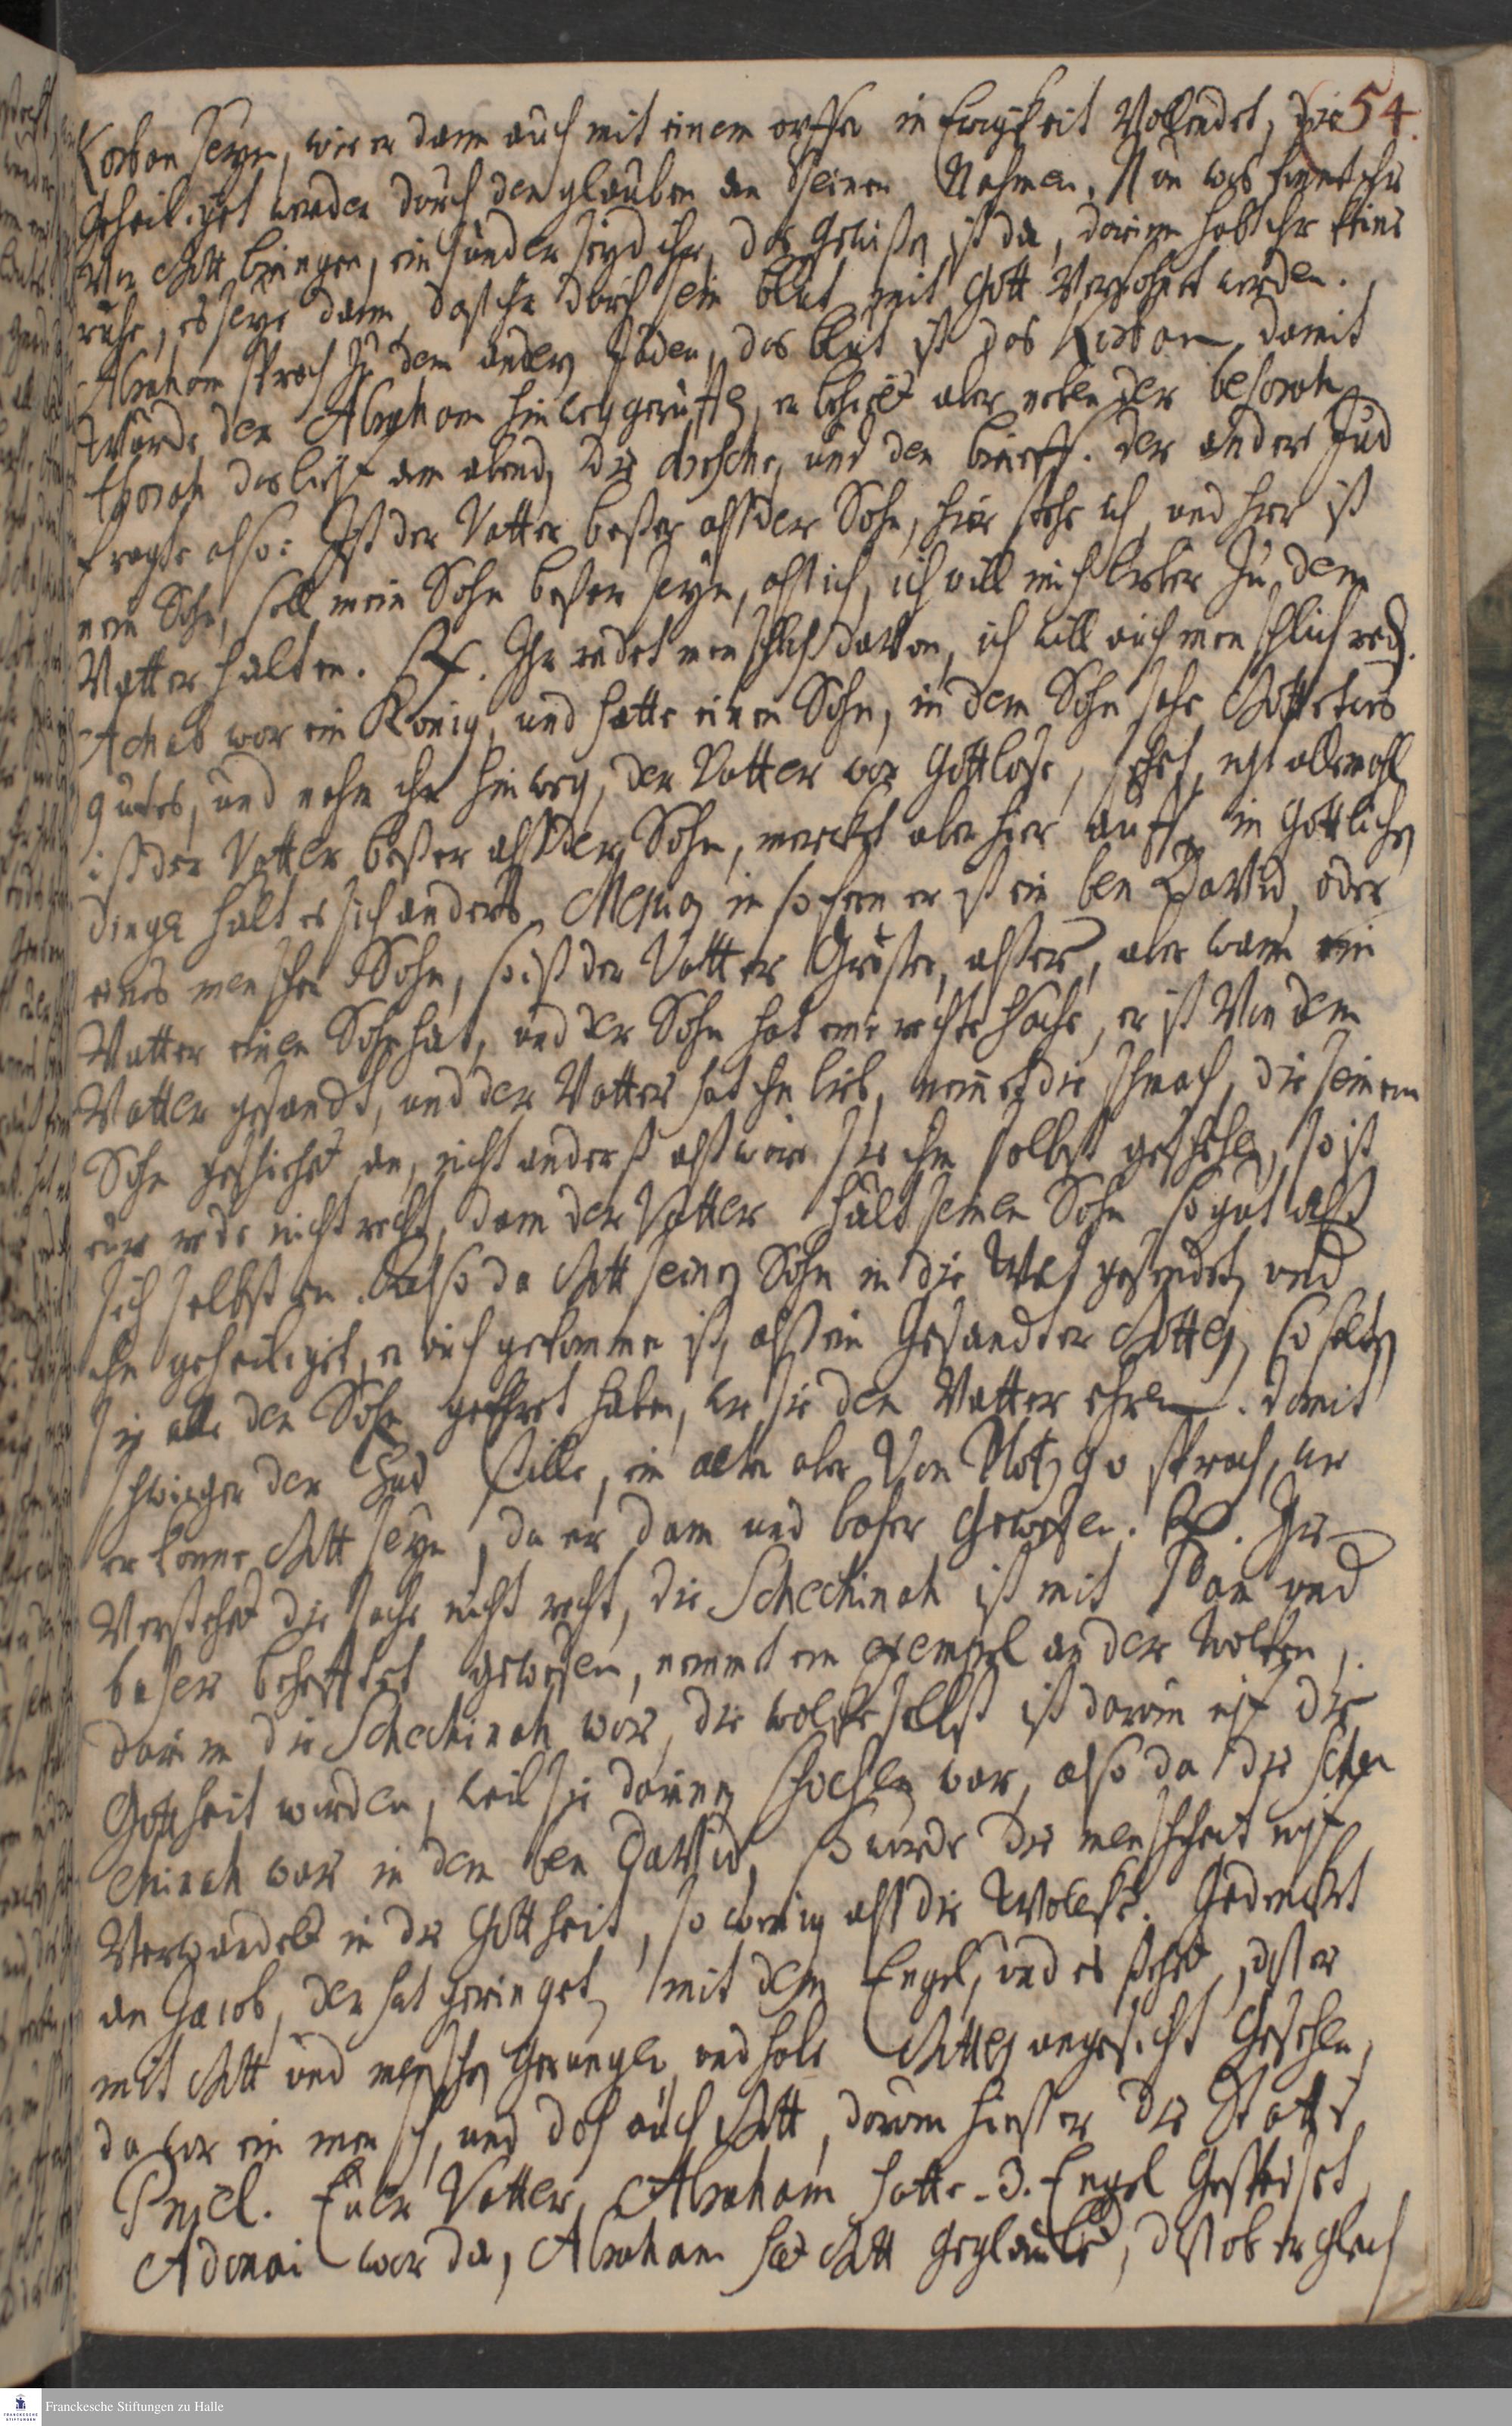 54.
Korban seyn, wie er dann auch mit einem opffer in Ewigkeit Vollendet, die
geheiliget werden durch den glauben an Seinen Nahmen. Nun was könnet ihr
Vor Gott bringen, ein sünder seyd ihr, das gewißen ist da, darinn habt ihr keine
ruhe, es seye dann, daß ihr durch sein blut mit Gott Versöhnet werden.
Abraham sprach zu dem andern Juden, das blut ist das Korban, damit
wurde der Abraham hinweg geruffen, er behielt aber neben der besorah
thorah das ließ am abend, die chesche, und den brieff. der andere Jud
fragte also: Ist der Vatter beßer alß der Sohn, hier stehe ich, und hier ist
mein Sohn, soll mein Sohn beßer seyn, alß ich, ich will mich lieber zu dem
Vatter halten. Rx. Ihr redet menschlich davon, ich will auch menschlich red.
Achab war ein König, und hatte einen Sohn, in dem Sohn sahe Gott etwas
gutes, und nahm ihn hinweg, der Vatter war Gottloße, sehet, nicht allemahl
ist der Vatter beßer alß der Sohn, mercket aber hier auff, in Göttlichen
dingen halt es sich anders, Mesias in so fern er ist ein ben David, oder
eines menschen Sohn, so ist der Vatter Größer, alß er, aber wann ein
Vatter einen Sohn hat, und der Sohn hat eine rechte sache, er ist Von dem
Vatter gesandt, und der Vatter hat ihn lieb, nimmet die schmach, die seinem
Sohn geschiehet an, nicht anderst alß wäre sie ihm selbst geschehen, so ist
eure rede nicht recht, dann der Vatter hält seinen Sohn so gut alß
sich selbsten. Also da Gott seinen Sohn in die Welt gesendet, und
ihn geheiliget, er auch gekommen ist, alß ein Gesandter Gottes, so solten
sie alle den Sohn geehret haben, wie sie den Vatter ehren. damit
schwiege der Jud stille, ein alter aber Von sprach, wie
er könne Gott seyn, da er dam und baser gewesen. Rx. Ihr
Verstehet die sache nicht recht, die Schechinah ist mit dam und
baser behafftet gewesen, nemmet ein exempel an der wolken,
darinn die Schechinah war, die wolke selbst ist darum nicht die
Gottheit worden, weil sie darinnen war, also da die sche
chinah war in dem ben David, so wurde die menschheit nicht
Verwandelt in die Gottheit, so wenig alß die Wolke. Gedencket
an Jacob, der hat geringet, mit dem Engel, und es stehet, daß er
mit Gott und menschen gerungen und habe Gottes angesicht gesehen,
da war ein mensch, und doch auch Gott, darum hieß er die Statt
Pniel. Euer Vatter, Abraham hatte 3. Engel gespeiset,
Adonai war da, Abraham hat Gott geglaubt, daß ob er gleich
Franckesche Stiftungen zu Halle